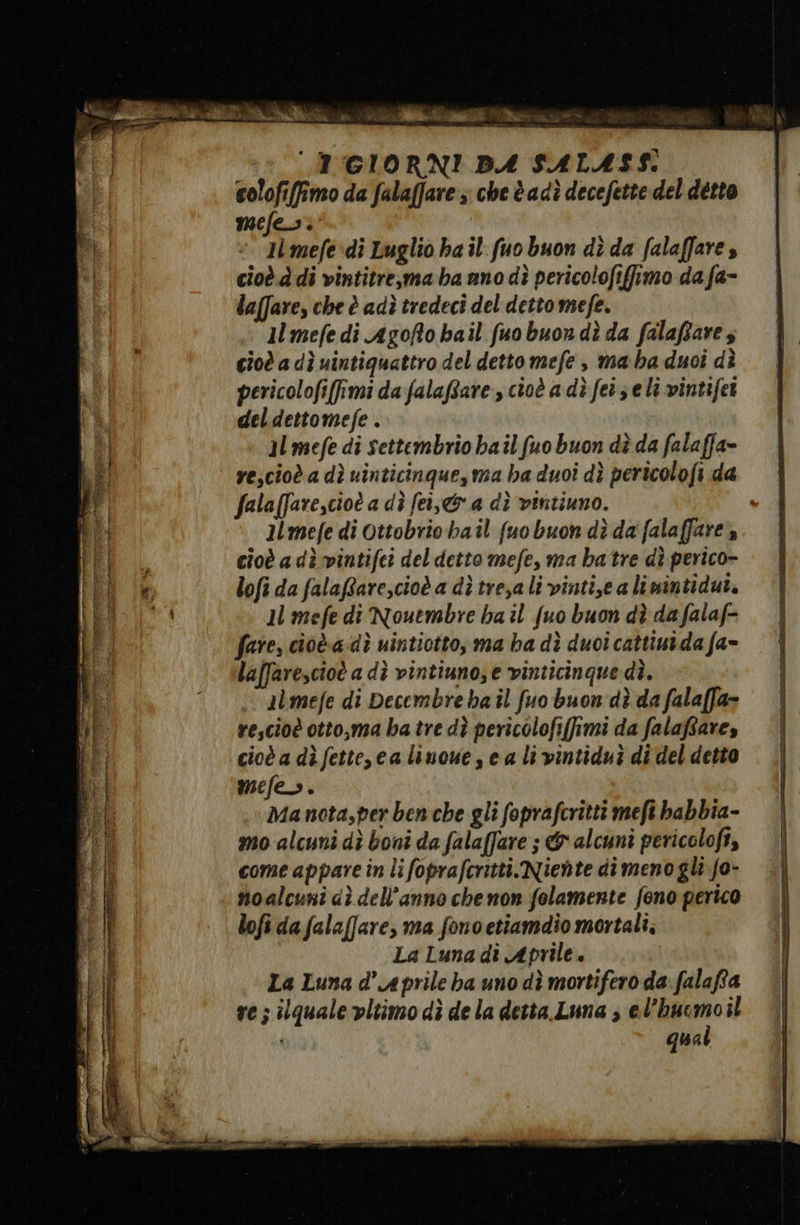 I GIORNI DA SALASS.
colosissimo da salassare, che è adì decesette del detto
mese.
Il mese di Luglio ha il suo buon dì da salassare,
cioè à di vintitre, ma ha uno dì pericolosissimo da sa-
lassare, che è adì tredeci del detto mese.
Il mese di Agosto ha il suo buon dì da salassare,
cioè a dì uintiquattro del detto mese, ma ha duoi dì
pericolosissimi da salassare, cioè a dì sei, e li vintisei
del detto mese.
Il mese di Settembrio ha il suo buon dì da salassa-
re, cioè a dì uinticinque, ma ha duoi dì pericolosi da
salassare, cioè a dì sei, & a dì vintiuno.
Il mese di Ottobrio ha il suo buon dì da salassare,
cioè a dì vintisei del detto mese, ma ha tre dì perico-
losi da salassare, cioè a dì tre, a li vinti, e a li uintidui.
Il mese di Nouembre ha il suo buon dì da salas-
sare, cioè a dì uintiotto, ma ha dì duoi cattiui da sa-
lassare, cioè a dì vintiuno, e vinticinque dì.
Il mese di Decembre ha il suo buon dì da salassa-
re, cioè otto, ma ha tre dì pericolosissimi da salassare,
cioè a dì sette, e a li noue, e a li vintiduì di del detto
mese.
Ma nota, per ben che gli soprascritti mesi habbia-
mo alcuni dì boni da salassare; & alcuni pericolosi,
come appare in li soprascritti. Niente di meno gli so-
no alcuni dì dell'anno che non solamente sono perico
losi da salassare, ma sono etiamdio mortali.
La Luna di Aprile.
La Luna d'Aprile ha uno dì mortifero da salassa
re; ilquale vltimo dì de la detta Luna, e l'huomo il
qual